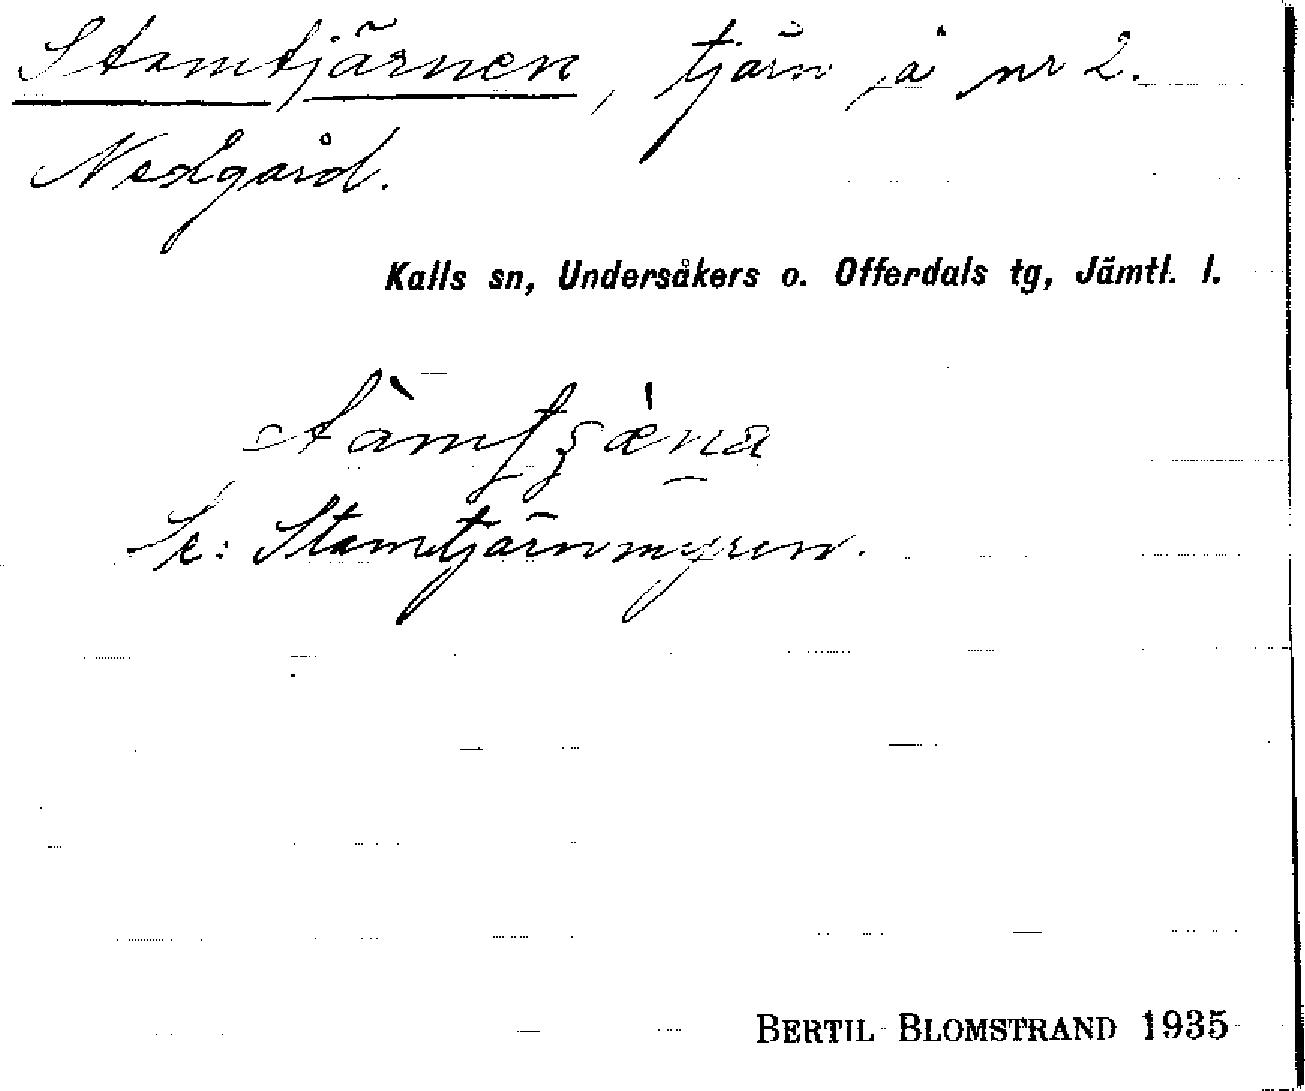 Stamtjärnen, tjärn å nr 2.
Nedgård.
Kalls sn, Undersåkers o. Offerdals tg, Jämtl. l.
Se: Stamtjärnmyren.
BERTIL BLOMSTRAND 1935